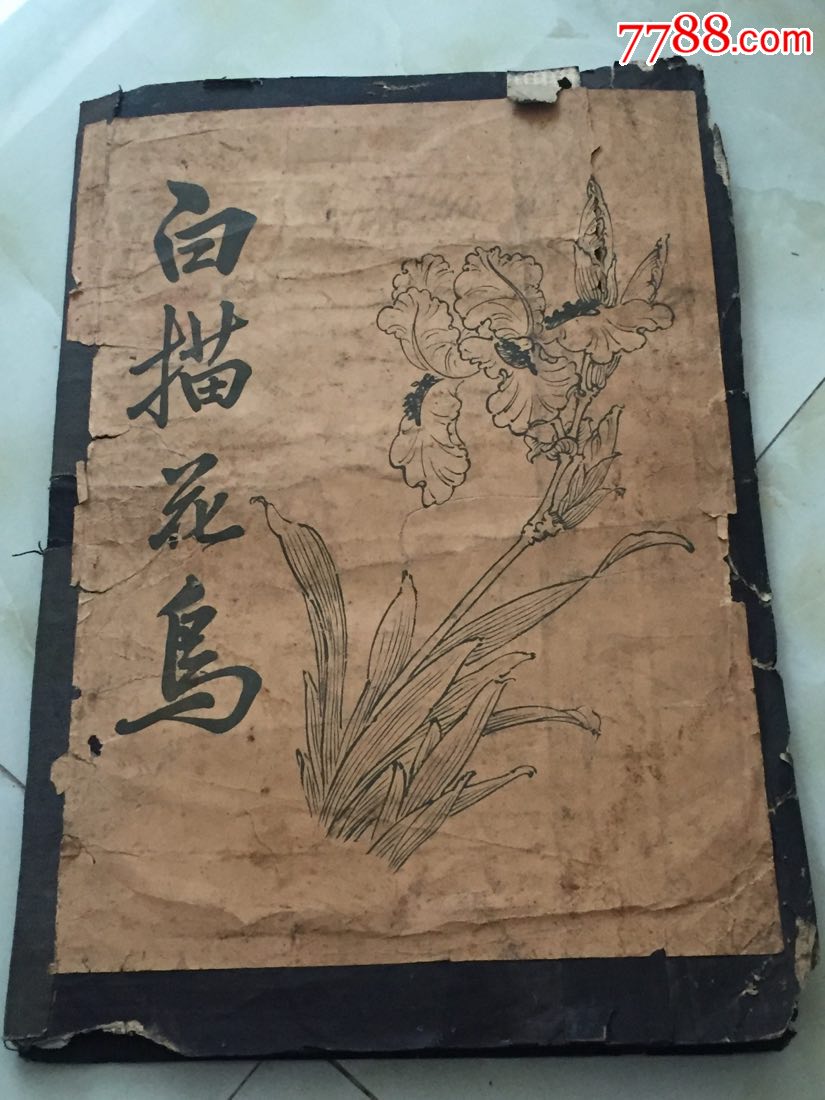 7788.com
白描花鸟